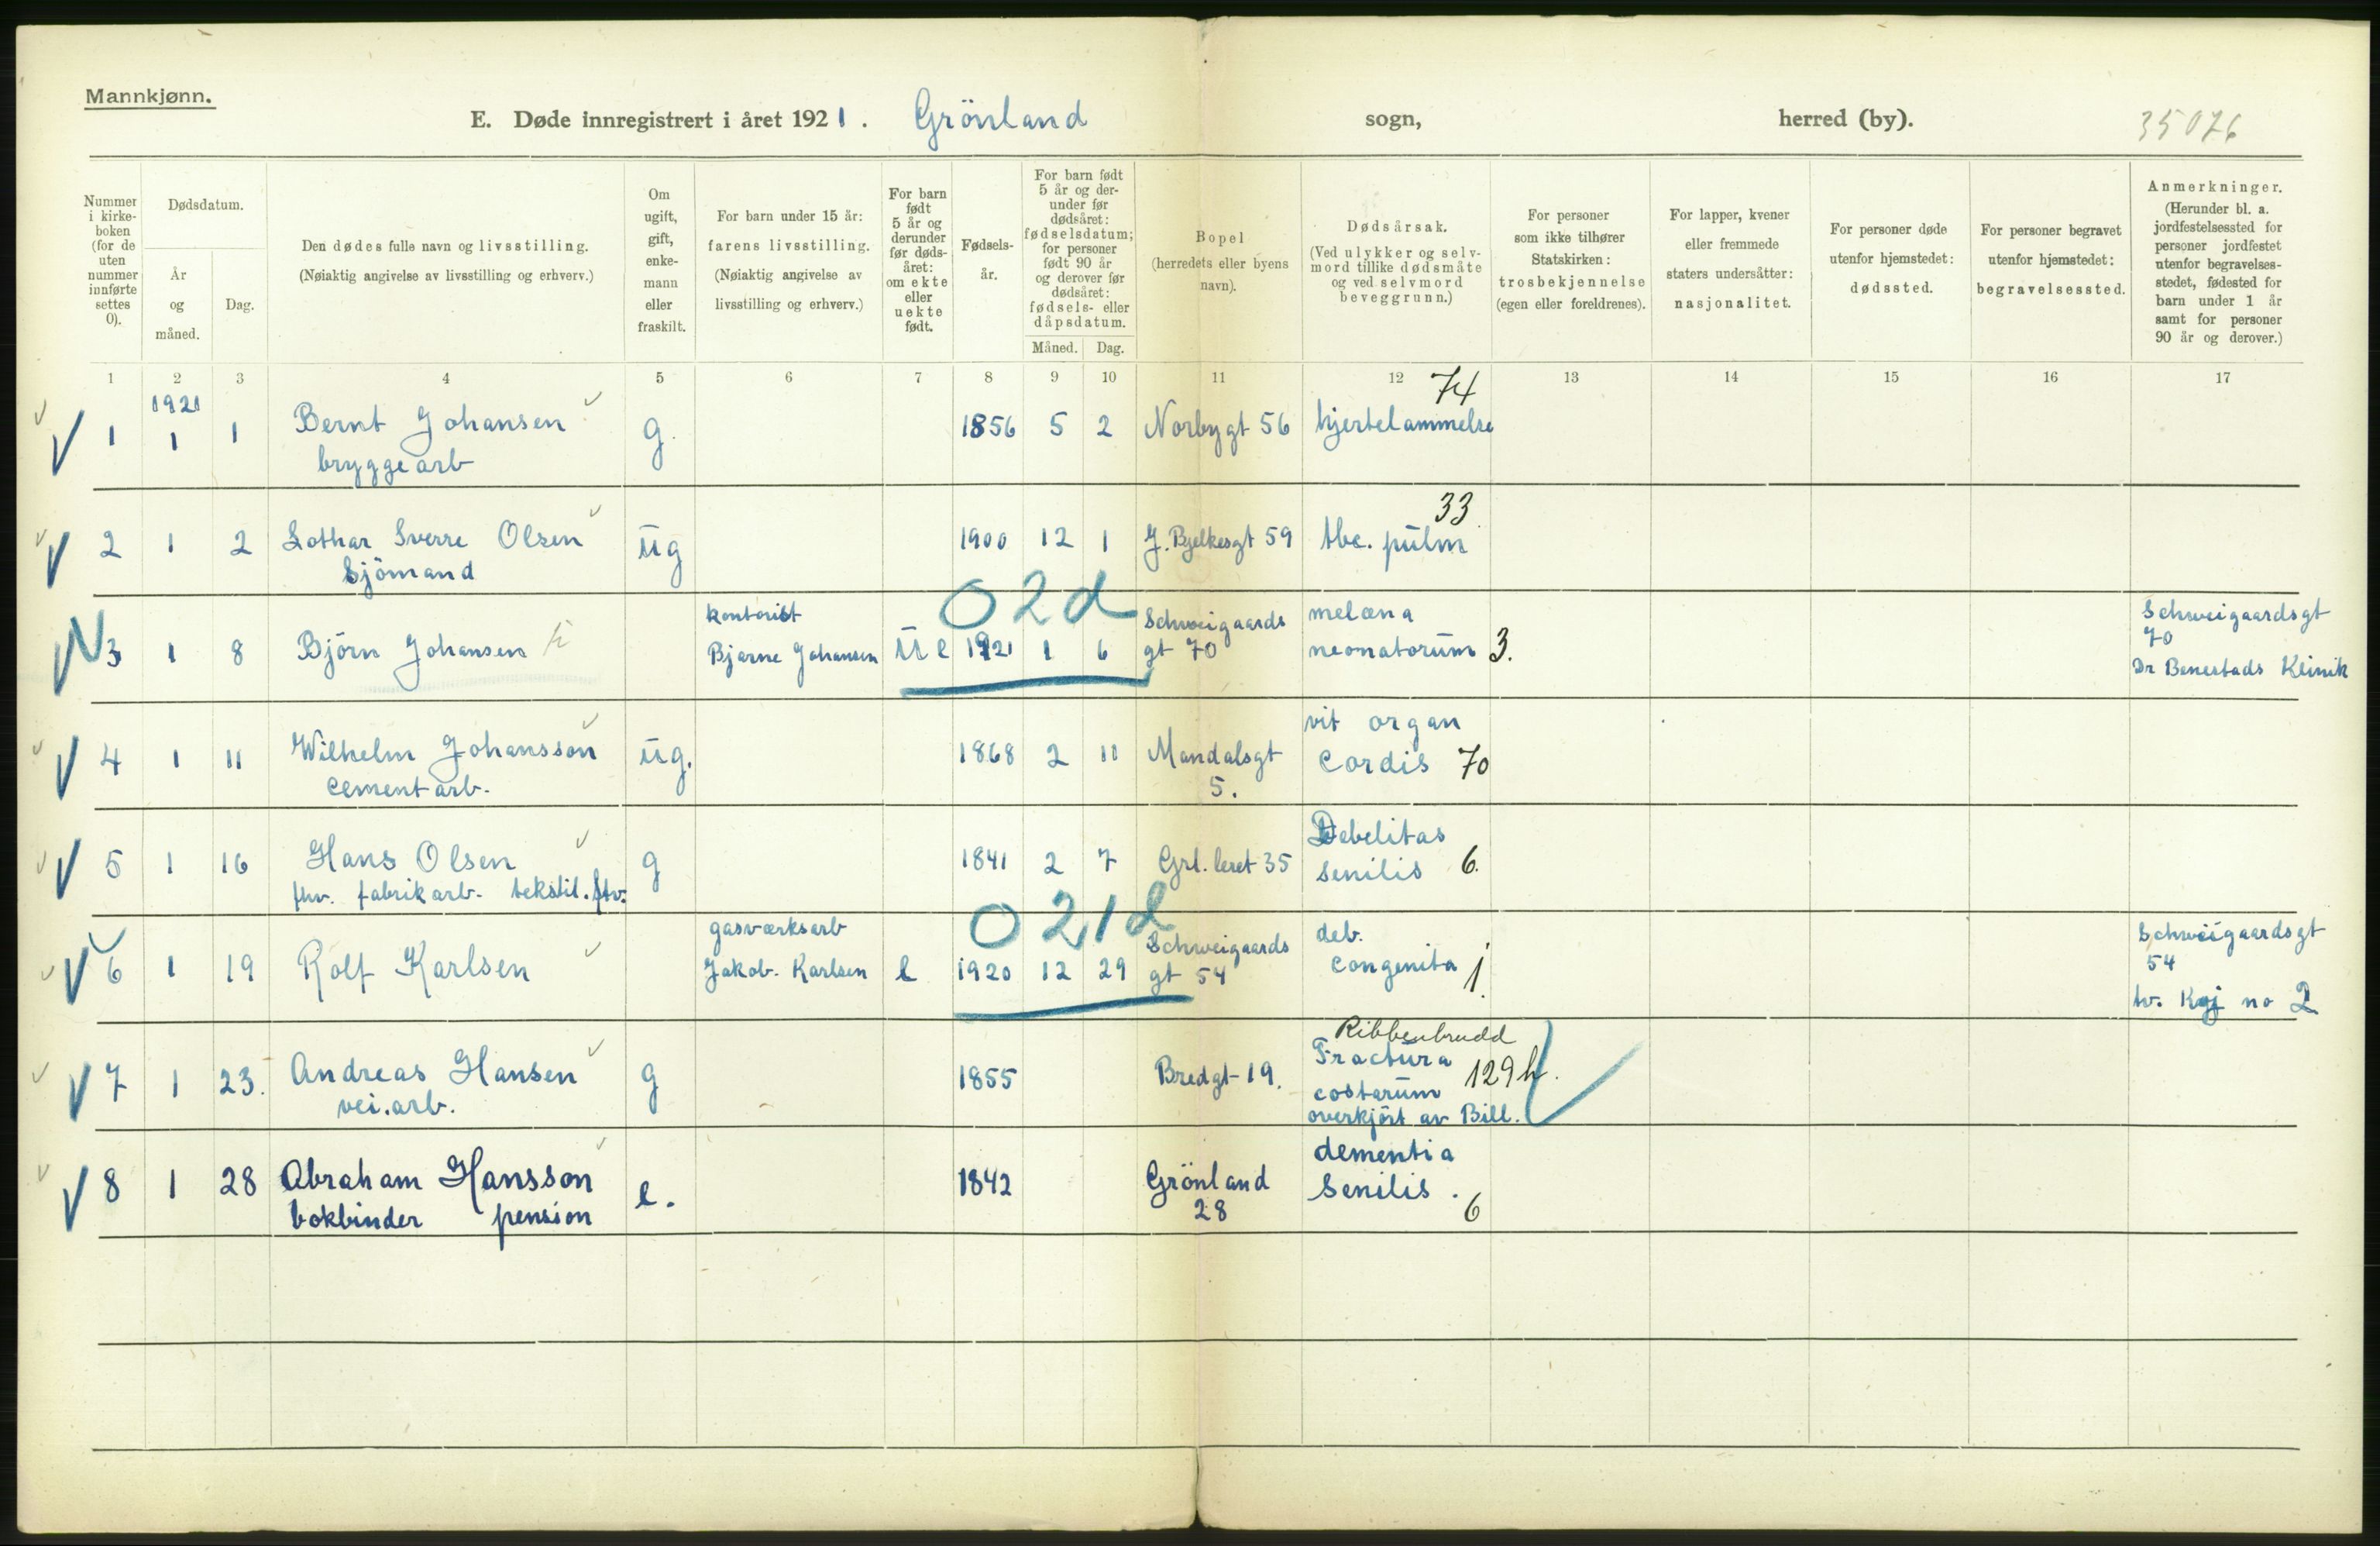 Mannkjønn.
E. Døde innregistrert i året 1921. Grönland sogn, herred (by). 35026
Nummer i kirkeboken (for de uten nummer innførte settes 0).
Dødsdatum.
År og måned.
Dag.
Den dødes fulle navn og livsstilling.
(Nøiaktig angivelse av livsstilling og erhverv.)
Om ugift, gift, enkemann eller fraskilt.
For barn under 15 år: farens livsstilling. (Nøiaktig angivelse av livsstilling og erhverv.)
For barn født 5 år og derunder før dødsåret: om ekte eller uekte født.
Fødselsår.
For barn født 5 år og derunder før dødsåret: fødselsdatum; for personer født 90 år og derover før dødsåret: fødsels- eller dåpsdatum.
Måned. Dag.
Bopel (herredets eller byens navn).
Dødsårsak. (Ved ulykker og selvmord tillike dødsmåte og ved selvmord beveggrunn.)
For personer som ikke tilhører Statskirken: trosbekjennelse (egen eller foreldrenes).
For lapper, kvener eller fremmede staters undersåtter: nasjonalitet.
For personer døde utenfor hjemstedet: dødssted.
For personer begravet utenfor hjemstedet: begravelsessted.
Anmerkninger. (Herunder bl. a. jordfestelsessted for personer jordfestet utenfor begravelsesstedet, fødested for barn under 1 år samt for personer 90 år og derover.)
1 2 3 4 5 6 7 8 9 10 11 12 13 14 15 16 17
1921 74
1 1 1 Bernt Johansen g. 1856 5 2 Norbygt 56 hjertelammelse
bryggearb
33
2 1 2 Lothar Sverre Olsen ug 1900 12 1 J. Bjelkesgt 59 tbc. pulm
Sjömand
02d
kontorist Schweigaards melæna Schweigaardsgt
3 1 8 Björn Johansen Bjarne Johansen u e 1921 1 6 gt 70 neonatorum 3. 70
Dr Benestads Klinik
vit organ
4 1 11 Wilhelm Johansson ug. 1868 2 11 Mandalsgt Cordis 70
cementarb. 5.
Debelitas
5 1 16 Hans Olsen g 1841 2 7 Grl. leret 35 senilis 6.
fhv. fabrikarb. tekstil. fhv.
021d
gasværksarb Schweigaards deb. Schweigaardsgt
6 1 19 Rolf Karlsen Jakob. Karlsen e 1920 12 29 gt 54 congenita 1. 54
tv. Kgj no 2
Ribbenbrudd
Fractura
7 1 23. Andreas Hansen g 1855 Bredgt 19. costarum 129h.
vei.arb. overkjört av Bill.
dementia
8 1 28 Abraham Hansson e. 1842 Grönland Senilis.
bokbinder pension 28 6